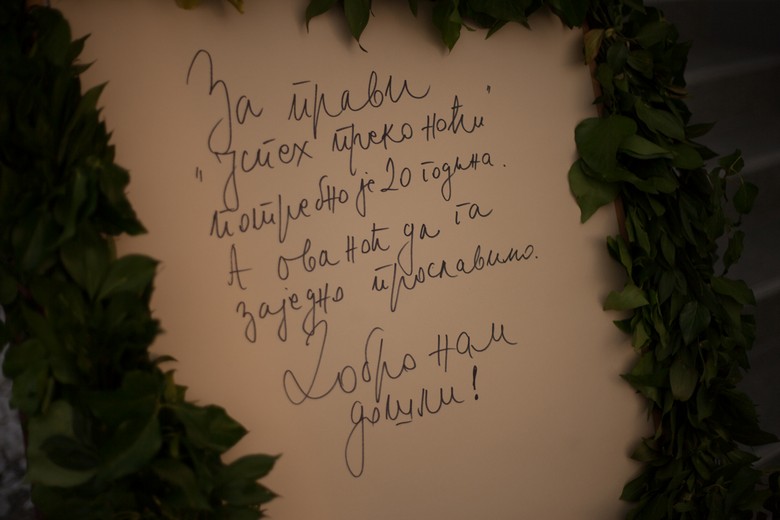 За прави
"успех преко ноћи"
потребно је 20 година.
А ова ноћ да га
заједно прославимо.
Добро нам
дошли!